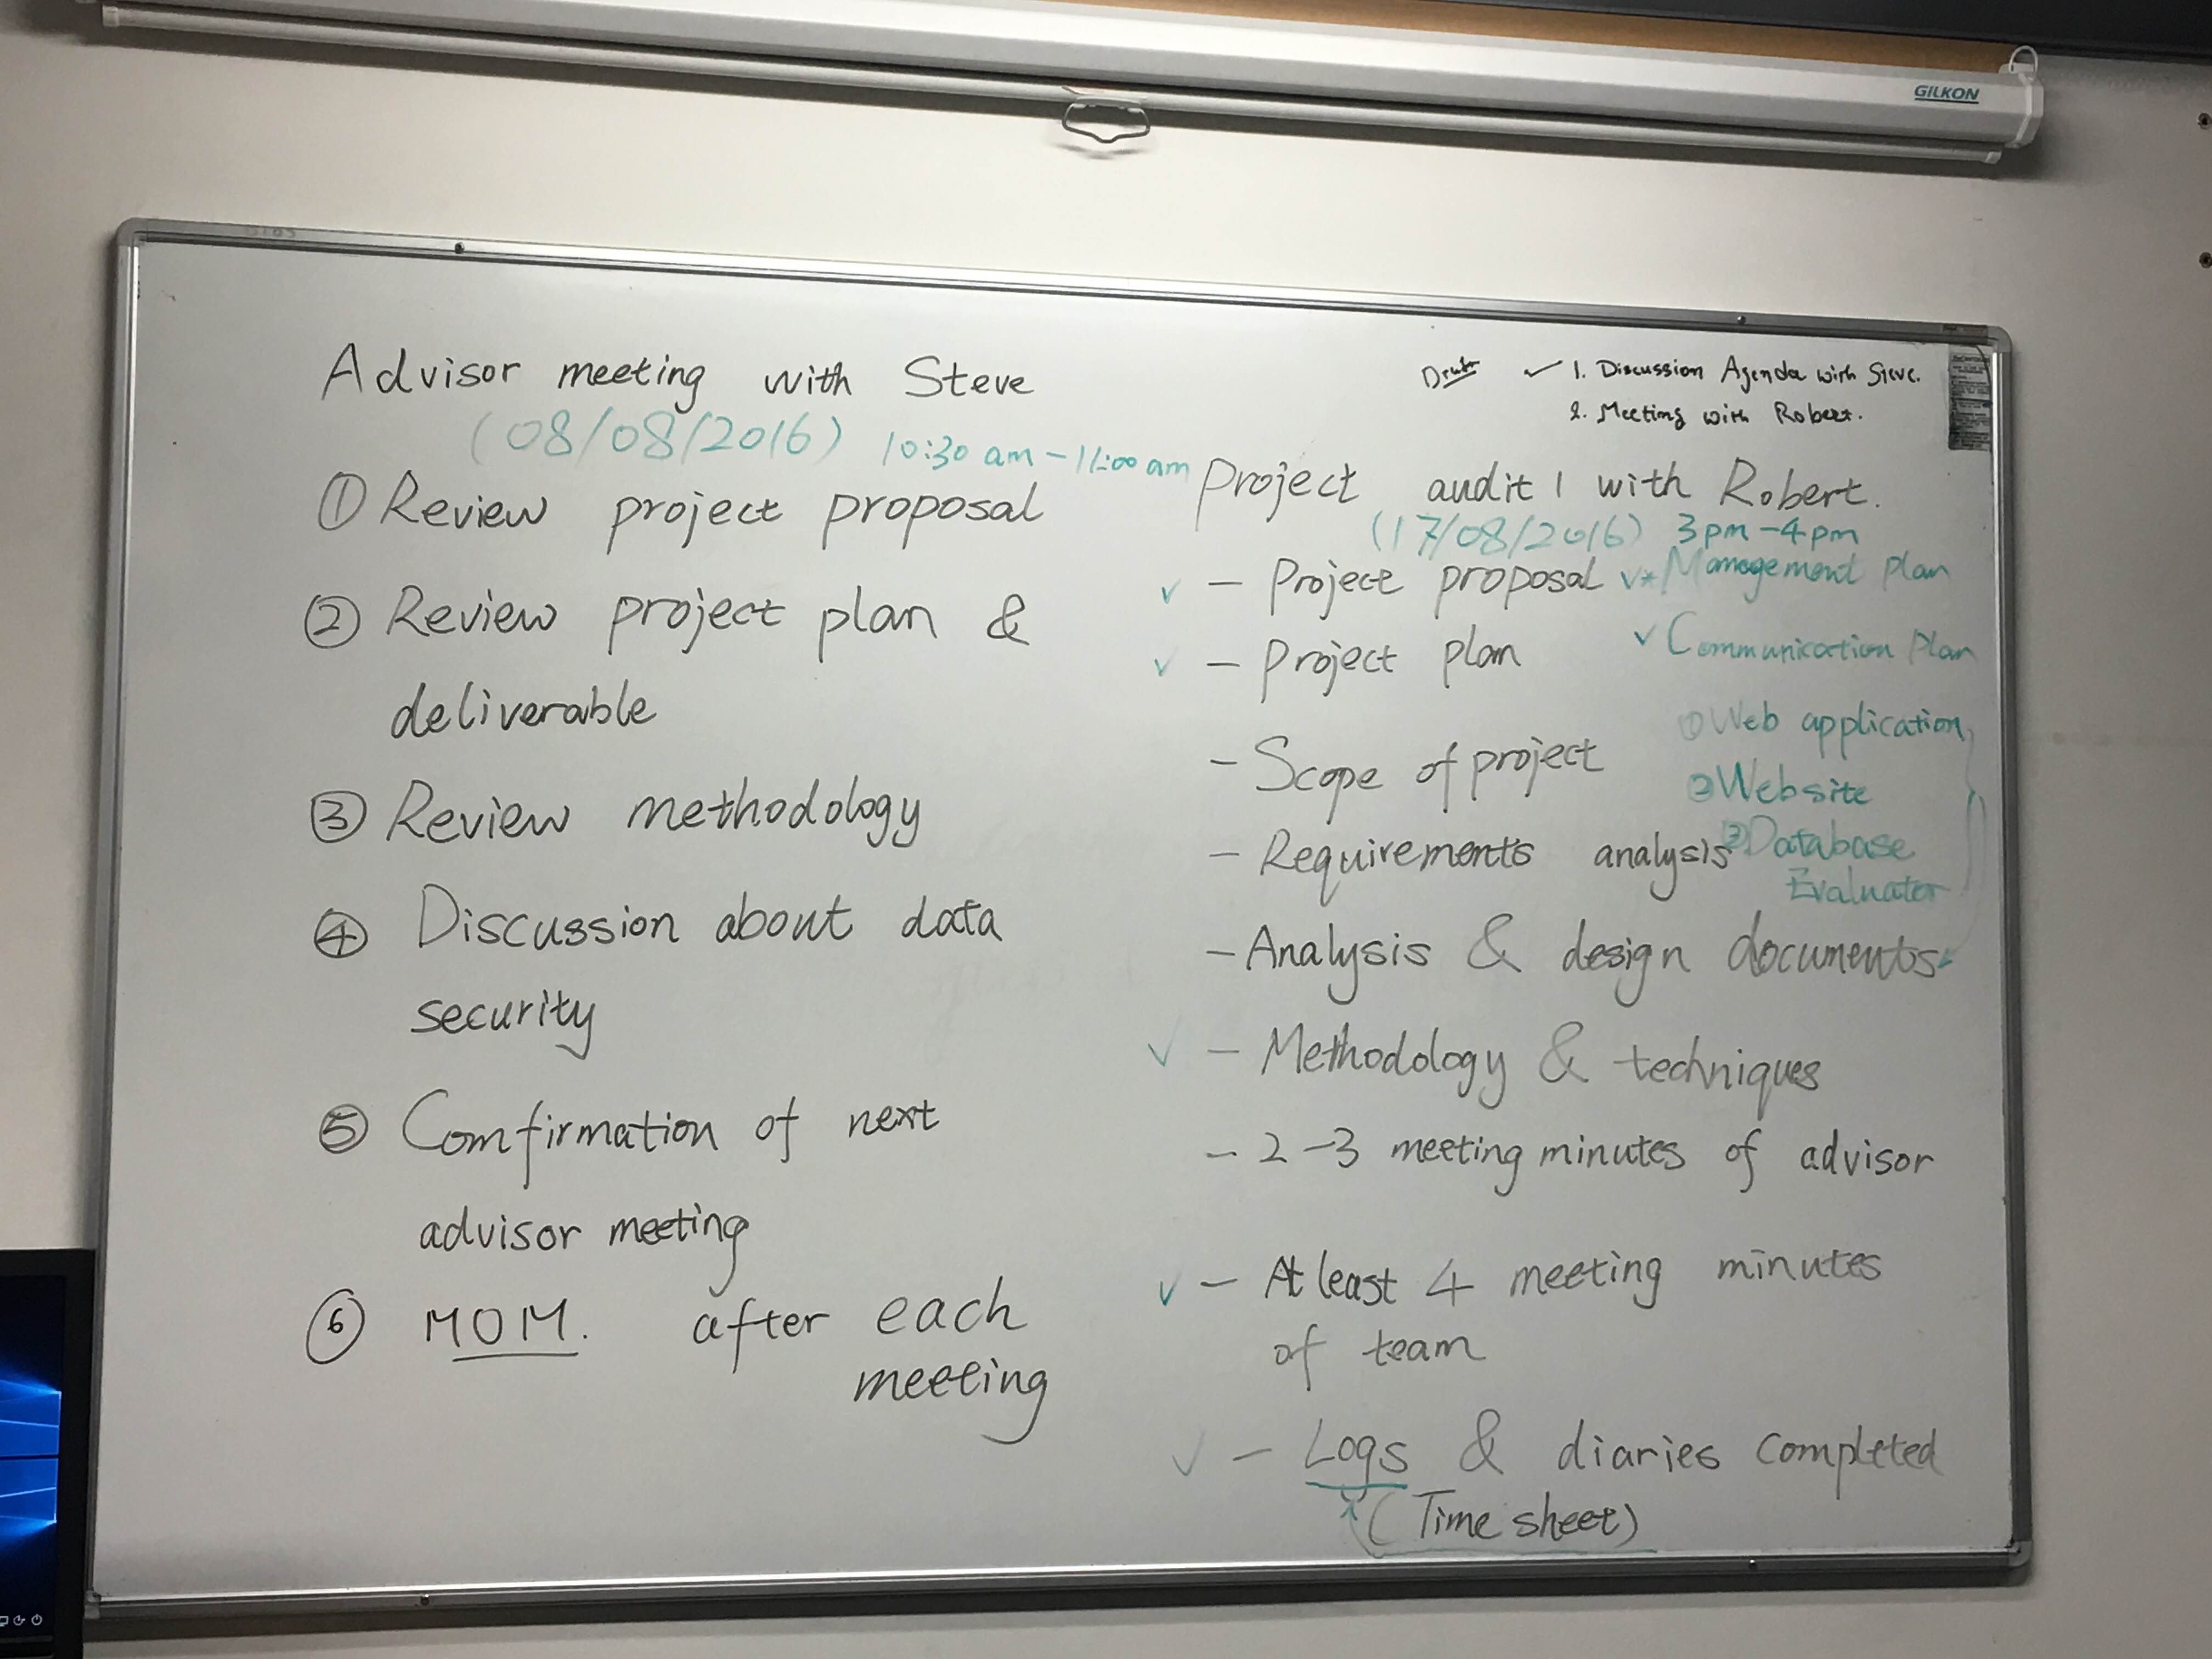 GILKON
Advisor meeting with Steve
(08/08/2016) 10:30 am - 11:00 am
① Review project proposal
② Review project plan &
deliverable
③ Review methodology
④ Discussion about data
security
⑤ Comfirmation of next
advisor meeting
⑥ MOM. after each
meeting
✓ 1. Discussion Agenda with Steve.
2. Meeting with Robert.
Project audit 1 with Robert.
(17/08/2016) 3pm - 4pm
✓ - Project proposal ✓* Management Plan
✓ - Project plan ✓ Communication Plan
① Web application
- Scope of project
② Website
- Requirements analysis ③ Database
Evaluator
- Analysis & design documents
✓ - Methodology & techniques
- 2-3 meeting minutes of advisor
✓ - At least 4 meeting minutes
of team
✓ - Logs & diaries completed
(Time sheet)